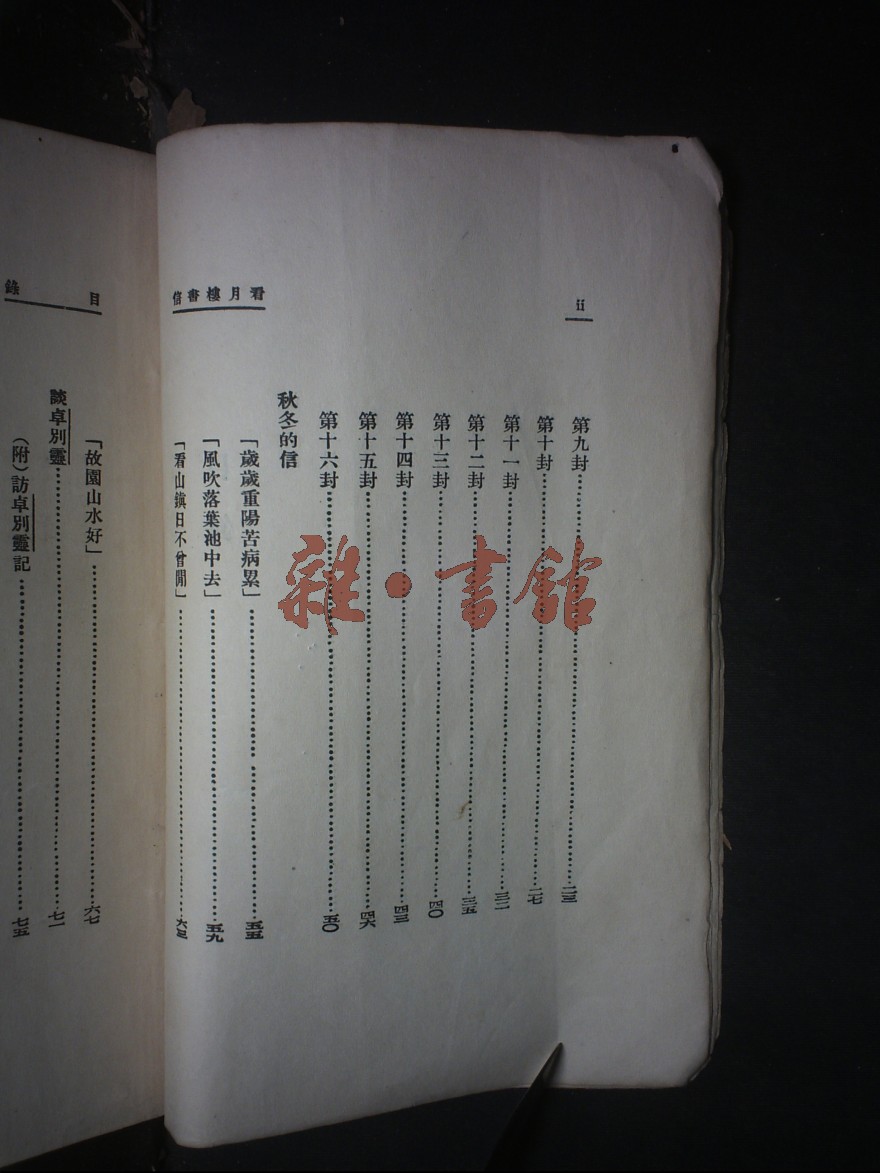 ii
看月樓書信
第九封……二三
第十封……二七
第十一封……三二
第十二封……三五
第十三封……四〇
第十四封……四三
第十五封……四六
第十六封……五〇
秋冬的信
「歲歲重陽苦病累」……五五
「風吹落葉池中去」……五九
「看山鎮日不曾閒」……六三
目錄
「故園山水好」……六七
談卓別靈……七一
（附）訪卓別靈記……七五
雜·書館